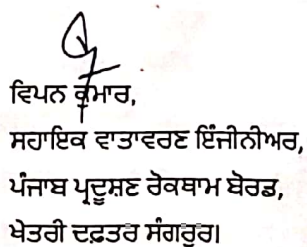 ਵਿਪਨ ਕੁਮਾਰ,
ਸਹਾਇਕ ਵਾਤਾਵਰਣ ਇੰਜੀਨੀਅਰ,
ਪੰਜਾਬ ਪ੍ਰਦੂਸ਼ਣ ਰੋਕਥਾਮ ਬੋਰਡ,
ਖੇਤਰੀ ਦਫ਼ਤਰ ਸੰਗਰੂਰ।